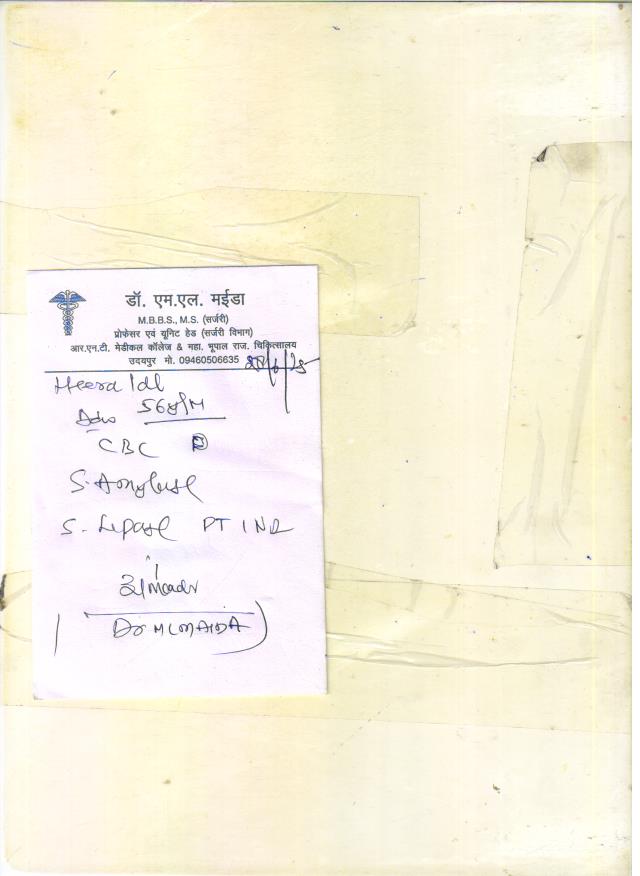 डॉ. एम.एल. मईडा
M.B.B.S., M.S. (सर्जरी)
प्रोफेसर एवं यूनिट हेड (सर्जरी विभाग)
आर.एन.टी. मेडीकल कॉलेज & महा. भूपाल राज. चिकित्सालय
उदयपुर मो. 09460506635
Heera lal
Adv 56y/M
CBC
S. Amylase
S. Lipase PT INR
Dr M L MAIDA